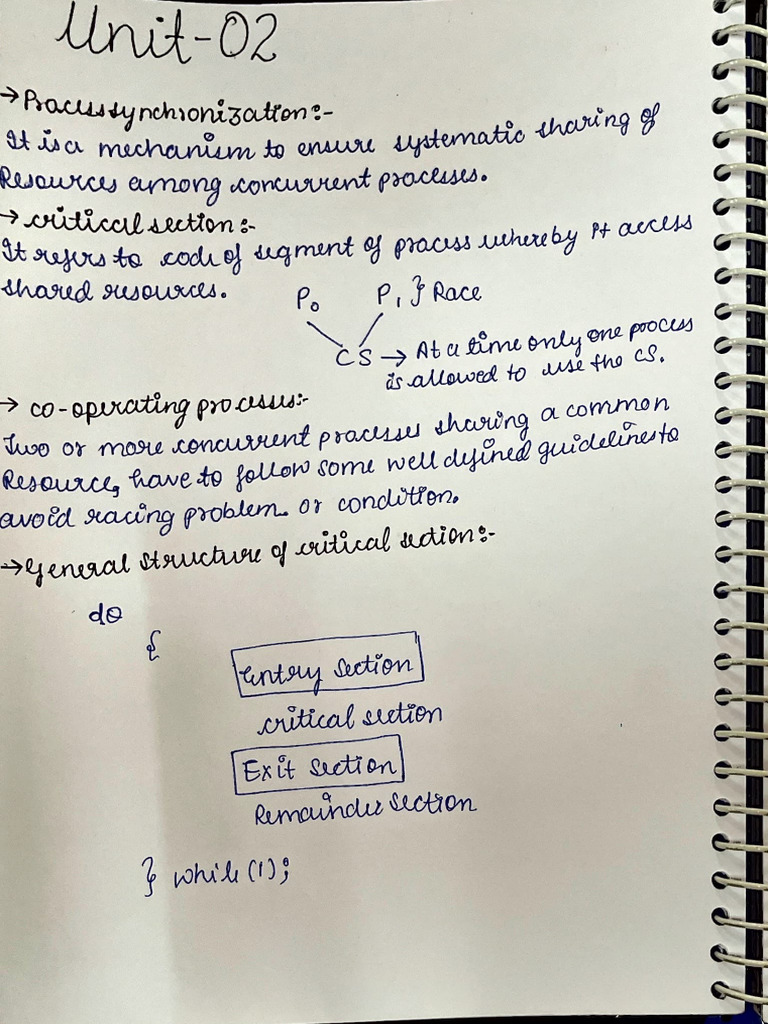 Unit-02
→ Process synchronization:-
It is a mechanism to ensure systematic sharing of
Resources among concurrent processes.
→ critical section:-
It refers to code of segment of process whereby it access
shared resources.
P₀ P₁ } Race
CS → At a time only one process
is allowed to use the CS.
→ co-operating processes:-
Two or more concurrent processes sharing a common
Resource, have to follow some well defined guidelines to
avoid racing problem. or condition.
→ General structure of critical section:-
do
{
Entry section
critical section
Exit section
Remainder section
} while (1);